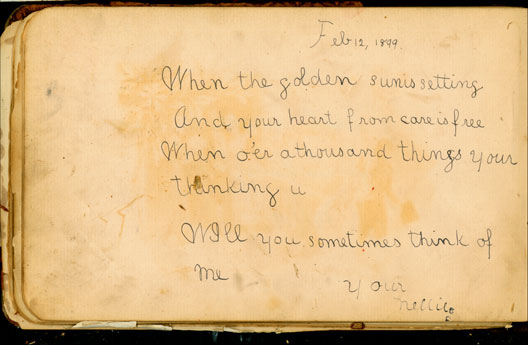 Feb 12, 1899.
When the golden sun is setting
And your heart from care is free
When o'er a thousand things your
thinking u
Will you sometimes think of
me
your
Nellie